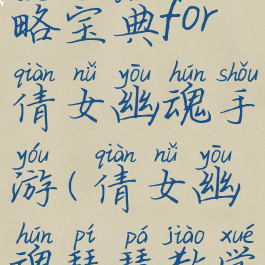 略宝典for
qiàn nǚ yōu hún shǒu
倩女幽魂手
yóu qiàn nǚ yōu
游(倩女幽
hún pí pá jiào xué
魂琵琶教学